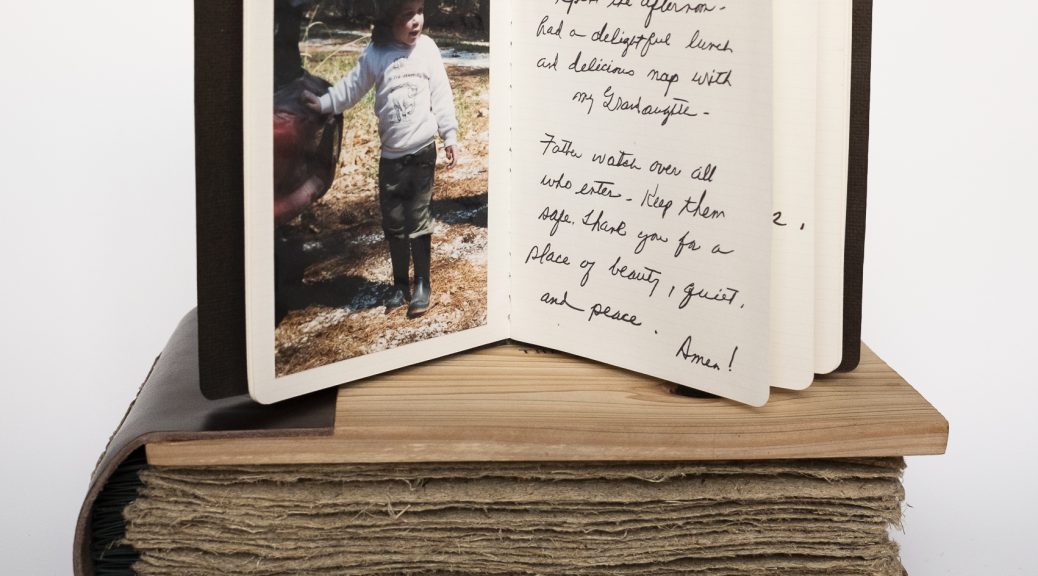 the afternoon -
had a delightful lunch
and delicious nap with
my Grandaughter -
Father watch over all
who enter - Keep them
safe. Thank you for a
place of beauty, quiet,
and peace.
Amen!
2.